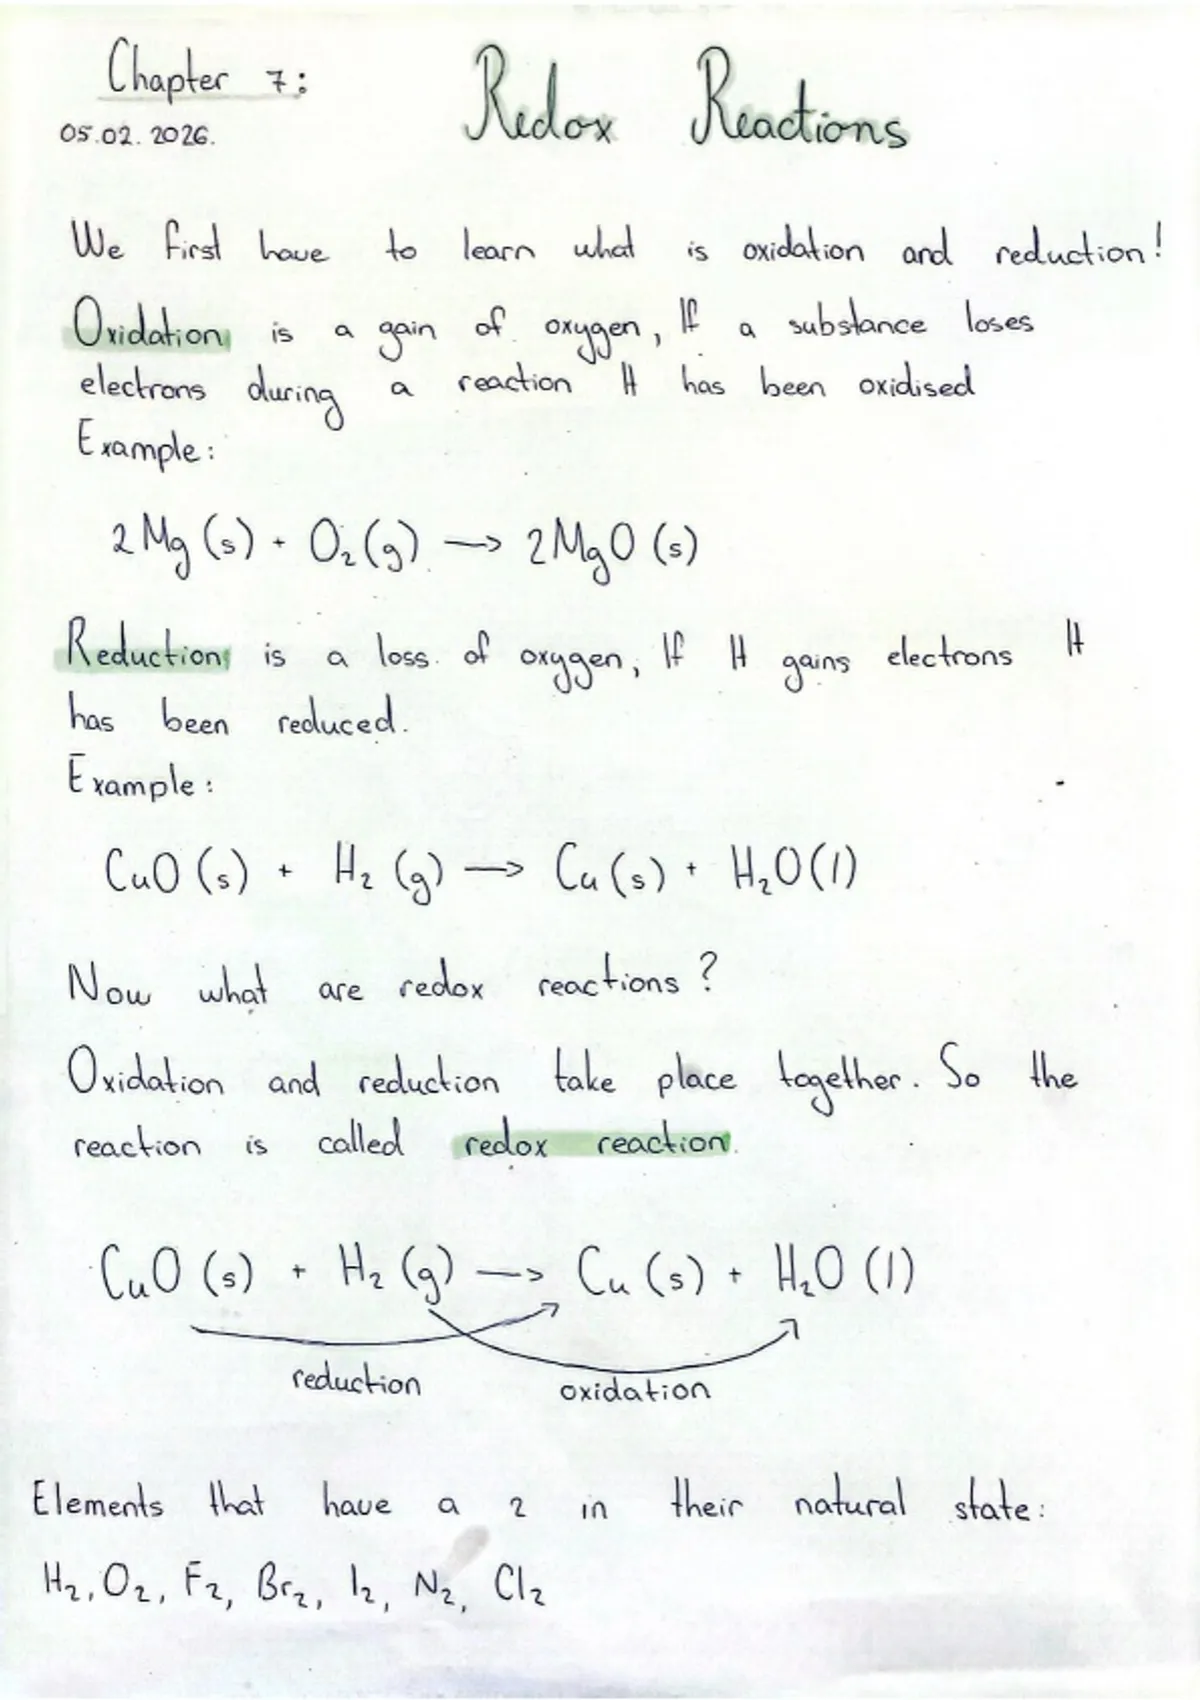 Chapter 7:
Redox Reactions
05.02.2026.
We first have to learn what is oxidation and reduction!
Oxidation is a gain of oxygen, If a substance loses
electrons during a reaction It has been oxidised
Example:
2Mg (s) + O₂ (g) —> 2MgO (s)
Reduction is a loss of oxygen, If It gains electrons It
has been reduced.
Example:
CuO (s) + H₂ (g) —> Cu (s) + H₂O (l)
Now what are redox reactions?
Oxidation and reduction take place together. So the
reaction is called redox reaction.
CuO (s) + H₂ (g) —> Cu (s) + H₂O (l)
reduction oxidation
Elements that have a 2 in their natural state:
H₂, O₂, F₂, Br₂, I₂, N₂, Cl₂